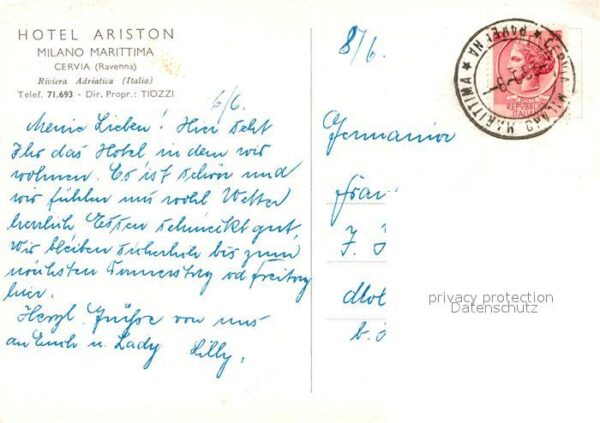 HOTEL ARISTON
MILANO MARITTIMA
CERVIA (Ravenna)
Riviera Adriatica (Italia)
Telef. 71.693 - Dir. Propr.: TIOZZI
6/6.
Meine Lieben! Hier seht
Ihr das Hotel in dem wir
wohnen. Es ist schön und
wir fühlen uns wohl Wetter
herrlich Essen schmeckt gut,
Wir bleiben sicherlich bis zum
nächsten Donnerstag od freitag
hier.
Herzl. Grüsse von uns
an Euch u. Lady Lilly,
8/6.
Germania
Frau
CERVIA MILANO MARITTIMA
RAVENNA
REPVBBLICA
ITALIANA
privacy protection
Datenschutz